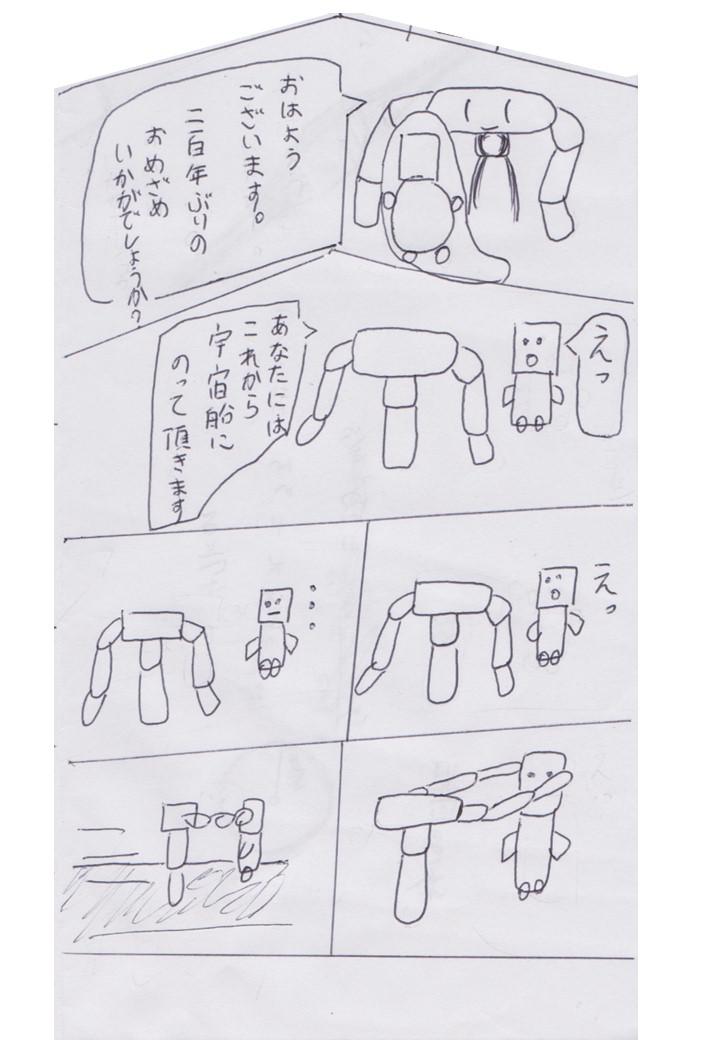 おはよう
ございます。
二百年ぶりの
おめざめ
いかがでしょうか？
えっ
あなたには
これから
宇宙船に
のって頂きます
えっ